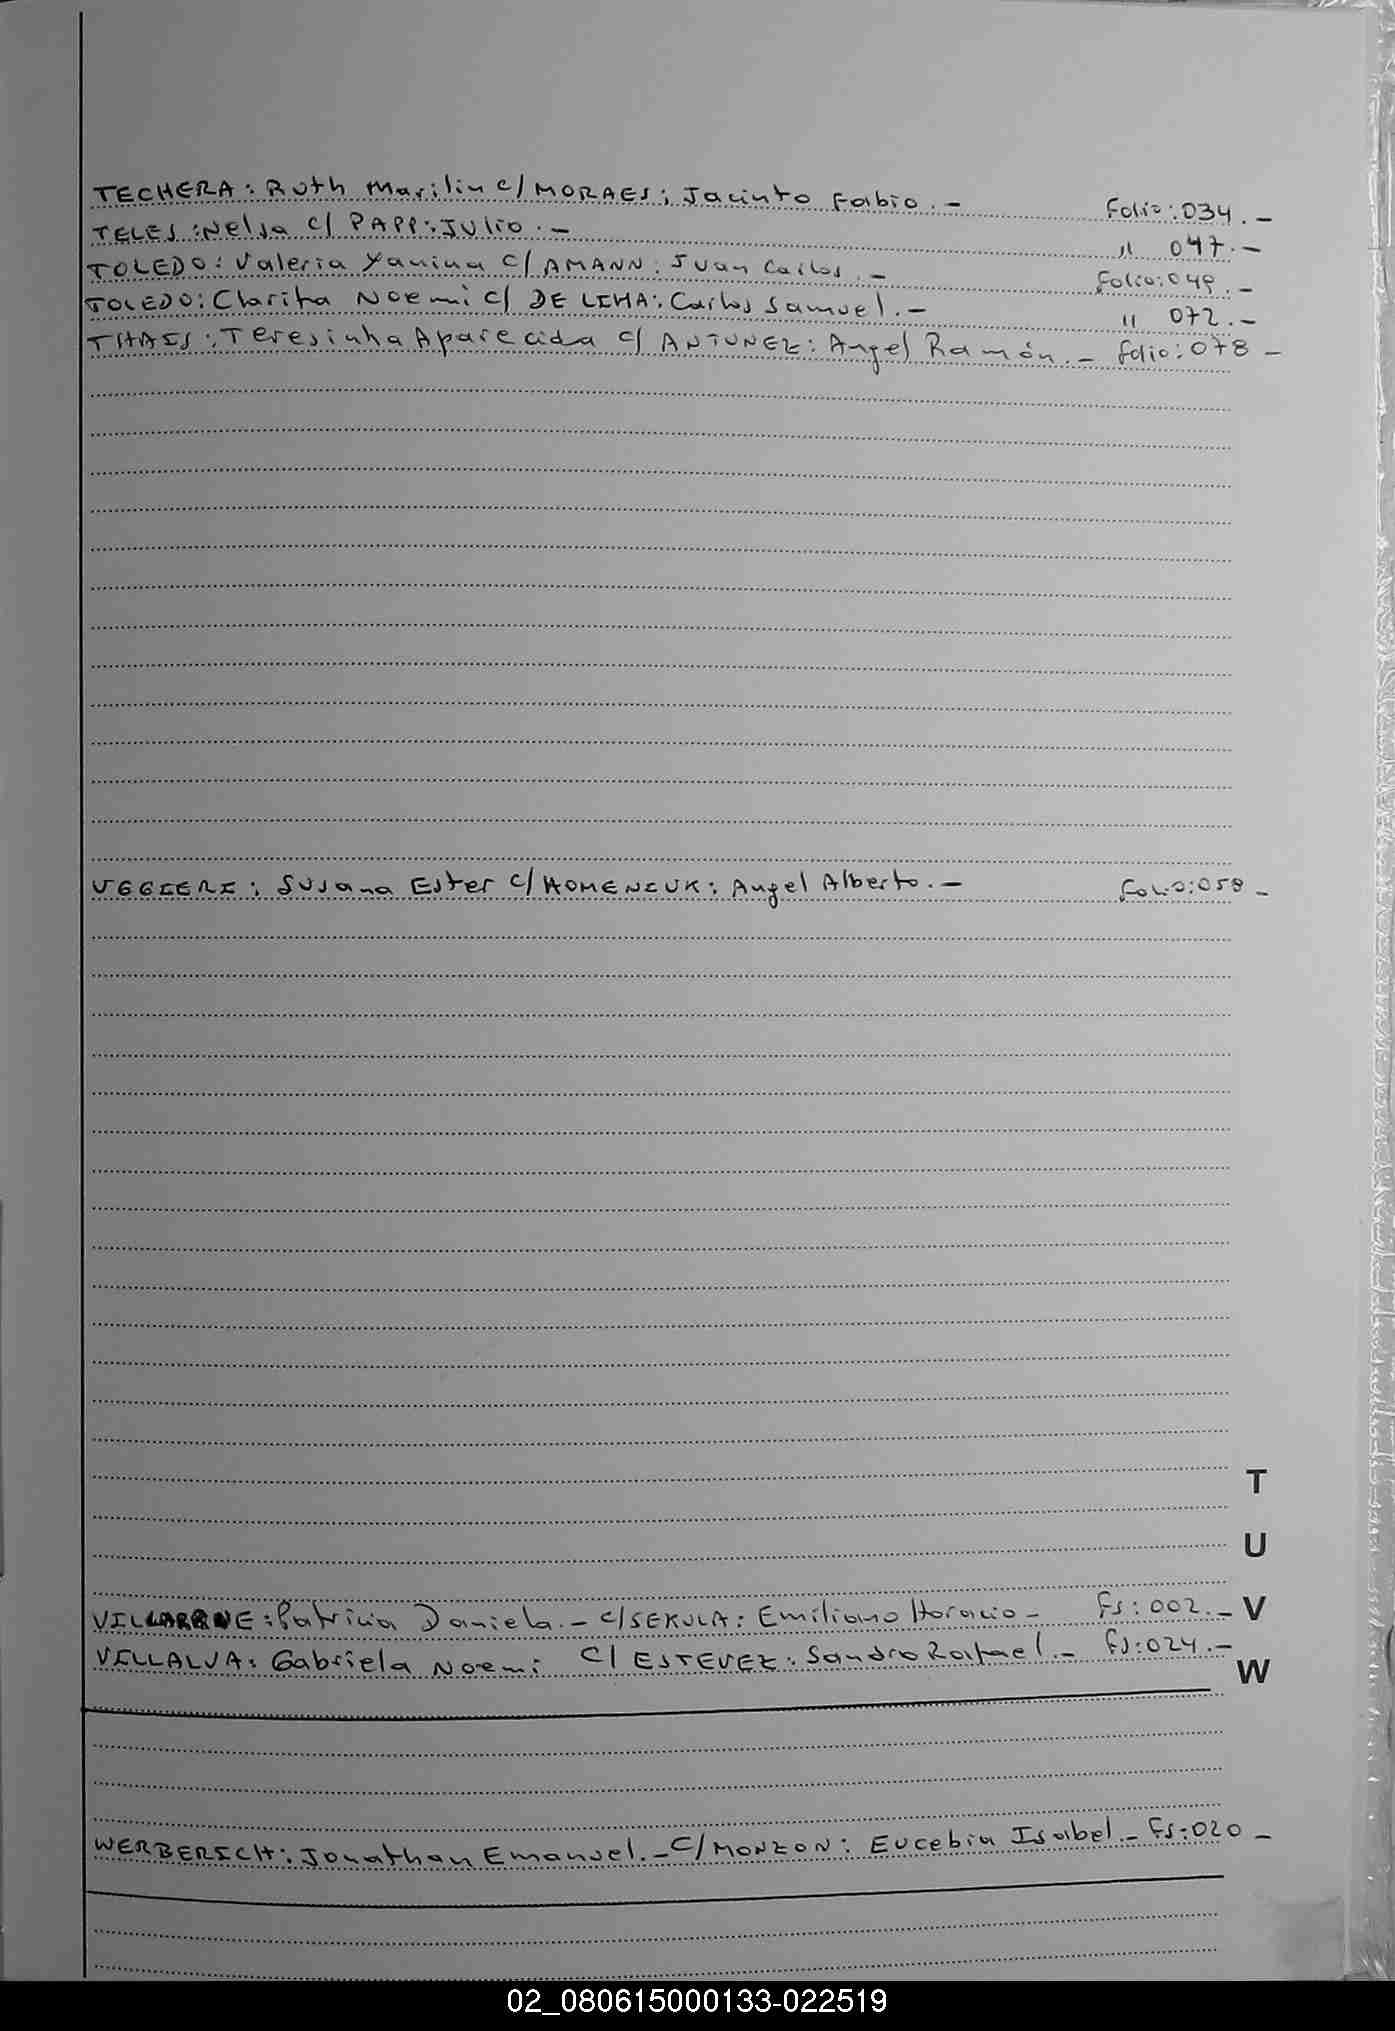 TECHERA: Ruth Marilin c/ MORAES; Jacinto Fabio.- Folio:034.-
TELES:Nelsa c/ PAPP:JULIO.- " 047.-
TOLEDO: Valeria Yanina c/ AMANN: Juan Carlos.- Folio:049.-
TOLEDO: Clarita Noemi c/ DE LIMA: Carlos Samuel.- " 072.-
THAIS: Teresinha Aparecida c/ ANTUNEZ: Angel Ramón.- folio:078-
UGGIERI: Susana Ester c/ HOMENIUK: Angel Alberto.- Folio:058-
T
U
Patricia Daniela.- c/SEKULA: Emiliano Horacio- Fs:002.- V
VILLALVA: Gabriela Noemi c/ ESTEVEZ: Sandro Rafael.- Fs:024.-
W
WERBERICH: Jonathan Emanuel.- C/MONZON: Eucebia Isabel.- Fs:020-
02_080615000133-022519